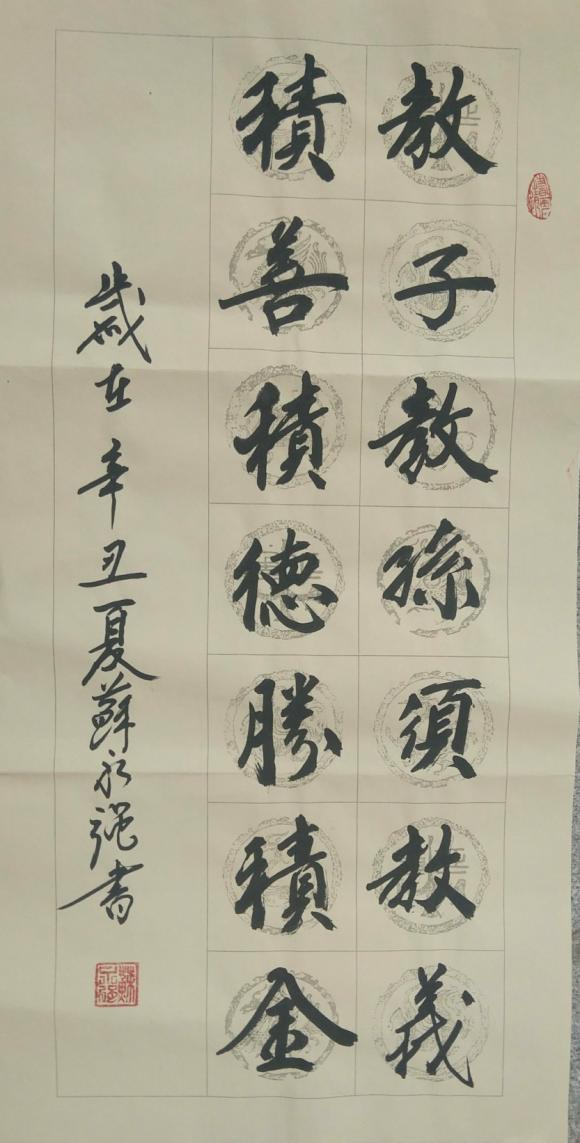 教子教孫須教義
積善積德勝積金
歲在辛丑夏蘇永強書